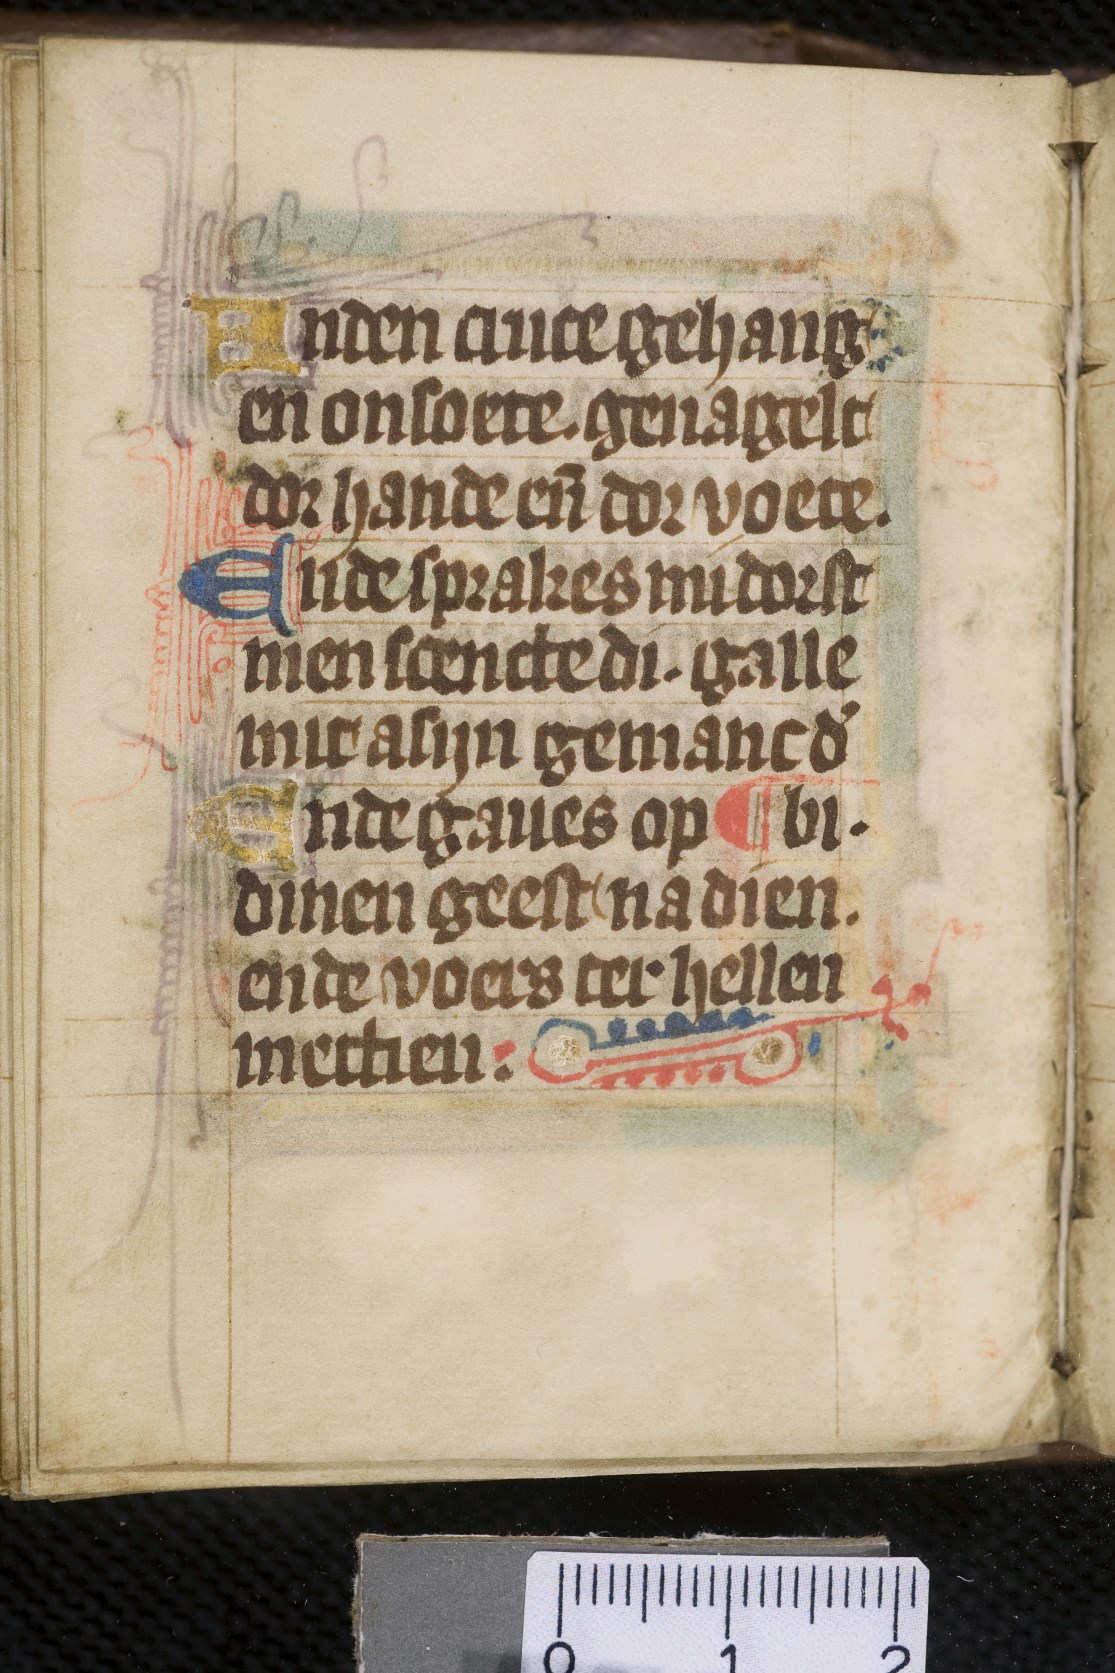 Anden cruce gehang
en onsoete. genagelt
dor hande en̄ dor voete.
Ende sprakes mi dorst
men scencte di. galle
mit asijn gemancd'
Ende gaues op ¶ bi.
dinen geest na dien.
ende voers ter hellen
mettien:
0 1 2